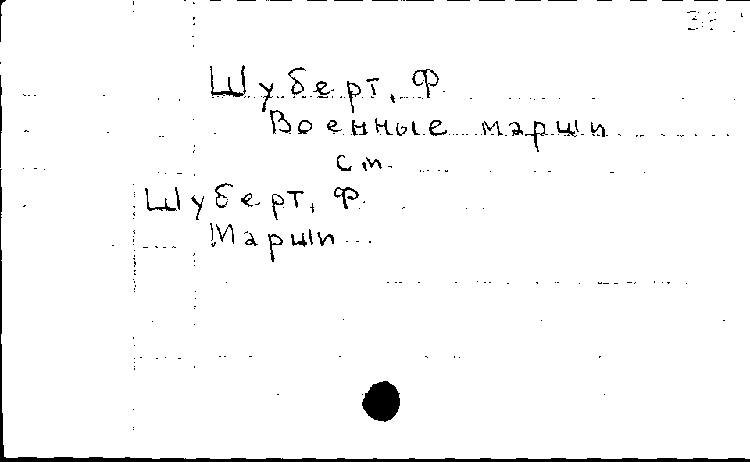 Шуберт, Ф.
Военные марши
см.
Шуберт, Ф.
Марши...